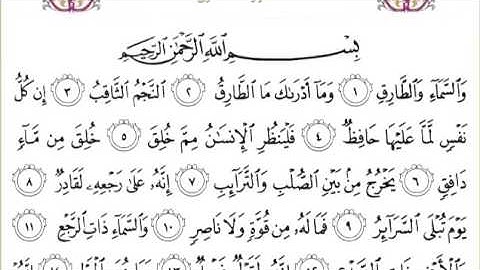 بِسْمِ اللَّهِ الرَّحْمَٰنِ الرَّحِيمِ
وَالسَّمَاءِ وَالطَّارِقِ ١ وَمَا أَدْرَىٰكَ مَا الطَّارِقُ ٢ النَّجْمُ الثَّاقِبُ ٣ إِن كُلُّ
نَفْسٍ لَّمَّا عَلَيْهَا حَافِظٌ ٤ فَلْيَنظُرِ الْإِنسَانُ مِمَّ خُلِقَ ٥ خُلِقَ مِن مَّاءٍ
دَافِقٍ ٦ يَخْرُجُ مِن بَيْنِ الصُّلْبِ وَالتَّرَائِبِ ٧ إِنَّهُ عَلَىٰ رَجْعِهِ لَقَادِرٌ ٨
يَوْمَ تُبْلَى السَّرَائِرُ ٩ فَمَا لَهُ مِن قُوَّةٍ وَلَا نَاصِرٍ ١٠ وَالسَّمَاءِ ذَاتِ الرَّجْعِ ١١